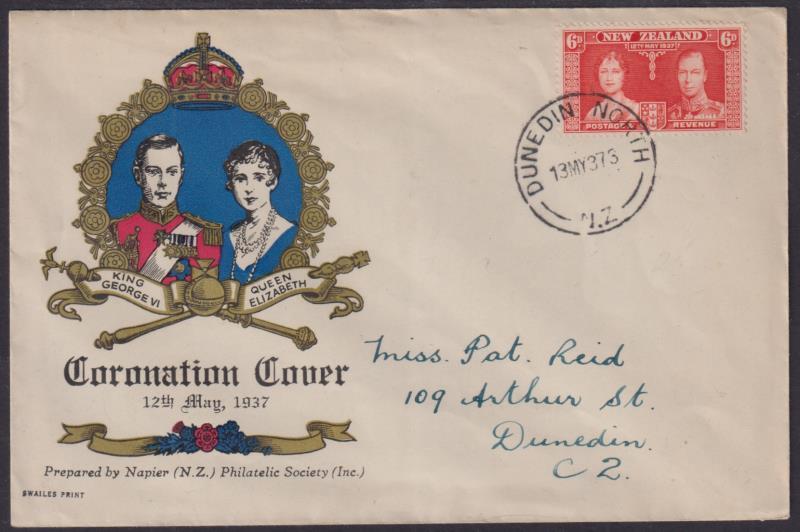 6D NEW ZEALAND 6D
12TH MAY 1937
POSTAGE & REVENUE
DUNEDIN NORTH
13MY373
N.Z.
KING GEORGE VI
QUEEN ELIZABETH
Coronation Cover
12th May, 1937
Prepared by Napier (N.Z.) Philatelic Society (Inc.)
SWAILES PRINT
Miss. Pat. Reid
109 Arthur St.
Dunedin.
C2.